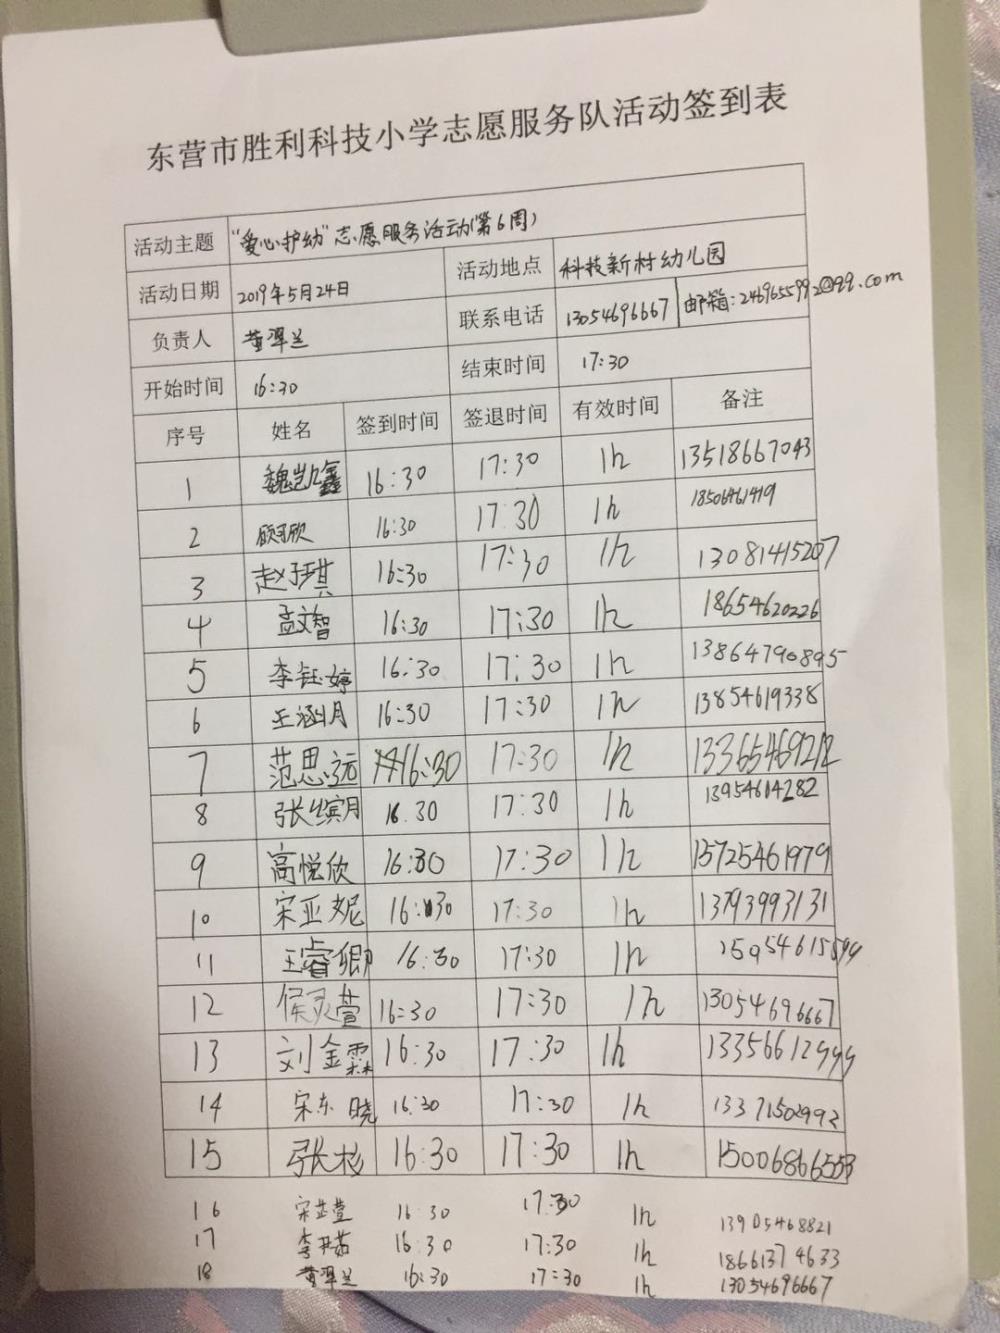 东营市胜利科技小学志愿服务队活动签到表
活动主题 "爱心护幼"志愿服务活动(第6周)
活动日期 2019年5月24日 活动地点 科技新村幼儿园
负责人 黄翠兰 联系电话 13054696667 邮箱:2469655992@qq.com
开始时间 16:30 结束时间 17:30
序号 姓名 签到时间 签退时间 有效时间 备注
1 魏凯鑫 16:30 17:30 1h 13518667043
2 16:30 17:30 1h 18506461419
3 赵于琪 16:30 17:30 1h 13081415207
4 孟文智 16:30 17:30 1h 18654620226
5 李钰婷 16:30 17:30 1h 13864790895
6 王涵月 16:30 17:30 1h 13854619338
7 范思远 16:30 17:30 1h 13365469212
8 张缤月 16.30 17:30 1h 13954614282
9 高悦欣 16:30 17:30 1h 15725461979
10 宋亚妮 16:30 17:30 1h 13793993131
11 王睿卿 16:30 17:30 1h
12 侯灵萱 16:30 17:30 1h 13054696667
13 刘金霖 16:30 17:30 1h 13356612999
14 宋东晓 16:30 17:30 1h 13371502992
15 张杉 16:30 17:30 1h 15006866553
16 宋芷萱 16:30 17:30 1h 13905468821
17 李开茹 16:30 17:30 1h 18661374633
18 黄翠兰 16:30 17:30 1h 13054696667